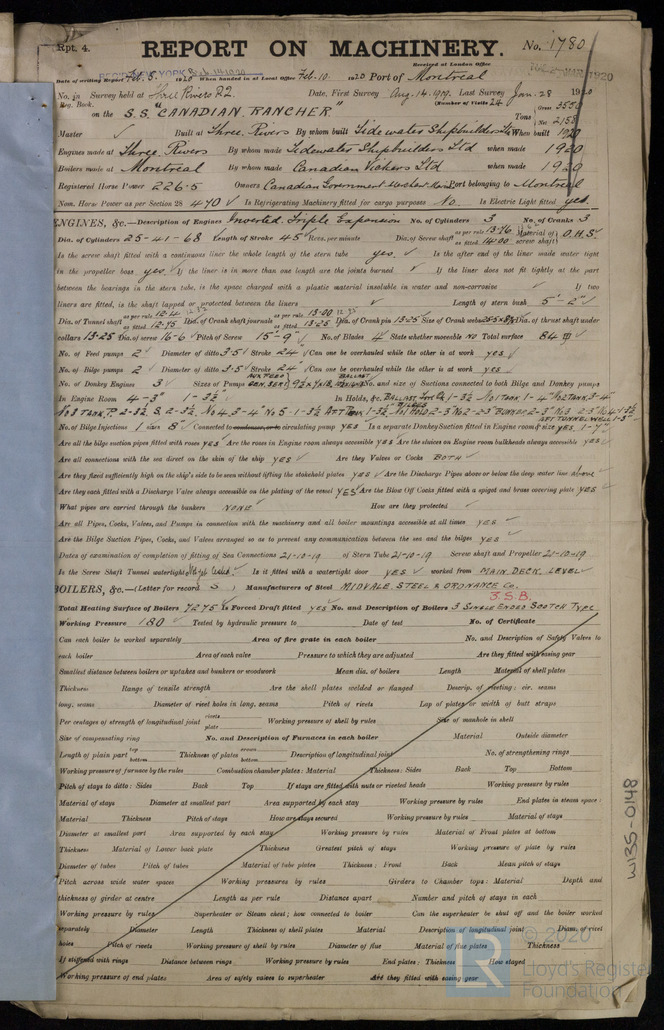 Rpt. 4.
REPORT ON MACHINERY. No. 1780
Received at London Office
Date of writing Report Feb. 5. 1920 When handed in at Local Office Feb. 10 1920 Port of Montreal
No. in Survey held at Three Rivers P.Q. Date, First Survey Aug. 14. 1919. Last Survey Jan. 28 1920
Reg. Book. (Number of Visits 24
on the S.S. "CANADIAN RANCHER" Tons Gross 3550 Net 2158
Master ✓ Built at Three Rivers By whom built Tidewater Shipbuilders Ltd When built 1920
Engines made at Three Rivers By whom made Tidewater Shipbuilders Ltd when made 1920
Boilers made at Montreal By whom made Canadian Vickers Ltd when made 1920
Registered Horse Power 226.5 Owners Canadian Government Port belonging to Montreal
Nom. Horse Power as per Section 28 470 ✓ Is Refrigerating Machinery fitted for cargo purposes No. Is Electric Light fitted yes.
ENGINES, &c.—Description of Engines Inverted Triple Expansion No. of Cylinders 3 No. of Cranks 3
Dia. of Cylinders 25-41-68 Length of Stroke 45 Revs. per minute Dia. of Screw shaft as per rule 13.76 as fitted 14.00 Material of screw shaft O.H.S.
Is the screw shaft fitted with a continuous liner the whole length of the stern tube yes. Is the after end of the liner made water tight
in the propeller boss yes. If the liner is in more than one length are the joints burned ✓ If the liner does not fit tightly at the part
between the bearings in the stern tube, is the space charged with a plastic material insoluble in water and non-corrosive ✓ If two
liners are fitted, is the shaft lapped or protected between the liners ✓ Length of stern bush 5'-2"
Dia. of Tunnel shaft as per rule 12.4 as fitted 12.75 Dia. of Crank shaft journals as per rule 13.00 as fitted 13.25 Dia. of Crank pin 13.25 Size of Crank webs Dia. of thrust shaft under
collars 13.25 Dia. of screw 16-6 Pitch of Screw 15'-9" No. of Blades 4 State whether moveable NO Total surface 84
No. of Feed pumps 2 Diameter of ditto 3.5 Stroke 24" Can one be overhauled while the other is at work YES
No. of Bilge pumps 2 Diameter of ditto 3.5 Stroke 24" Can one be overhauled while the other is at work YES
No. of Donkey Engines 3 Sizes of Pumps No. and size of Suctions connected to both Bilge and Donkey pumps
In Engine Room 4-3" 1-3½" In Holds, &c.
No. of Bilge Injections 1 8" Connected to condenser, or to circulating pump YES Is a separate Donkey Suction fitted in Engine room & size YES, 1-7"
Are all the bilge suction pipes fitted with roses YES Are the roses in Engine room always accessible YES Are the sluices on Engine room bulkheads always accessible YES
Are all connections with the sea direct on the skin of the ship YES Are they Valves or Cocks BOTH
Are they fixed sufficiently high on the ship's side to be seen without lifting the stokehold plates YES Are the Discharge Pipes above or below the deep water line above
Are they each fitted with a Discharge Valve always accessible on the plating of the vessel YES Are the Blow Off Cocks fitted with a spigot and brass covering plate YES
What pipes are carried through the bunkers NONE How are they protected ✓
Are all Pipes, Cocks, Valves, and Pumps in connection with the machinery and all boiler mountings accessible at all times YES
Are the Bilge Suction Pipes, Cocks, and Valves arranged so as to prevent any communication between the sea and the bilges YES
Dates of examination of completion of fitting of Sea Connections 21-10-19 of Stern Tube 21-10-19 Screw shaft and Propeller 21-10-19
Is the Screw Shaft Tunnel watertight Is it fitted with a watertight door YES worked from MAIN DECK LEVEL
BOILERS, &c.—(Letter for record S) Manufacturers of Steel MIDVALE STEEL & ORDNANCE Co.
3. S.B.
Total Heating Surface of Boilers 7275 Is Forced Draft fitted YES No. and Description of Boilers 3 SINGLE ENDED SCOTCH TYPE
Working Pressure 180 Tested by hydraulic pressure to Date of test No. of Certificate
Can each boiler be worked separately Area of fire grate in each boiler No. and Description of Safety Valves to
each boiler Area of each valve Pressure to which they are adjusted Are they fitted with easing gear
Smallest distance between boilers or uptakes and bunkers or woodwork Mean dia. of boilers Length Material of shell plates
Thickness Range of tensile strength Are the shell plates welded or flanged Descrip. of riveting: cir. seams
long. seams Diameter of rivet holes in long. seams Pitch of rivets Lap of plates or width of butt straps
Per centages of strength of longitudinal joint rivets plate Working pressure of shell by rules Size of manhole in shell
Size of compensating ring No. and Description of Furnaces in each boiler Material Outside diameter
Length of plain part top bottom Thickness of plates crown bottom Description of longitudinal joint No. of strengthening rings
Working pressure of furnace by the rules Combustion chamber plates: Material Thickness: Sides Back Top Bottom
Pitch of stays to ditto: Sides Back Top If stays are fitted with nuts or riveted heads Working pressure by rules
Material of stays Diameter at smallest part Area supported by each stay Working pressure by rules End plates in steam space:
Material Thickness Pitch of stays How are stays secured Working pressure by rules Material of stays
Diameter at smallest part Area supported by each stay Working pressure by rules Material of Front plates at bottom
Thickness Material of Lower back plate Thickness Greatest pitch of stays Working pressure of plate by rules
Diameter of tubes Pitch of tubes Material of tube plates Thickness: Front Back Mean pitch of stays
Pitch across wide water spaces Working pressures by rules Girders to Chamber tops: Material Depth and
thickness of girder at centre Length as per rule Distance apart Number and pitch of stays in each
Working pressure by rules Superheater or Steam chest; how connected to boiler Can the superheater be shut off and the boiler worked
separately Diameter Length Thickness of shell plates Material Description of longitudinal joint Diam. of rivet
holes Pitch of rivets Working pressure of shell by rules Diameter of flue Material of flue plates Thickness
If stiffened with rings Distance between rings Working pressure by rules End plates: Thickness How stayed
Working pressure of end plates Area of safety valves to superheater Are they fitted with easing gear
W135-0148
© 2020
Lloyd's Register
Foundation